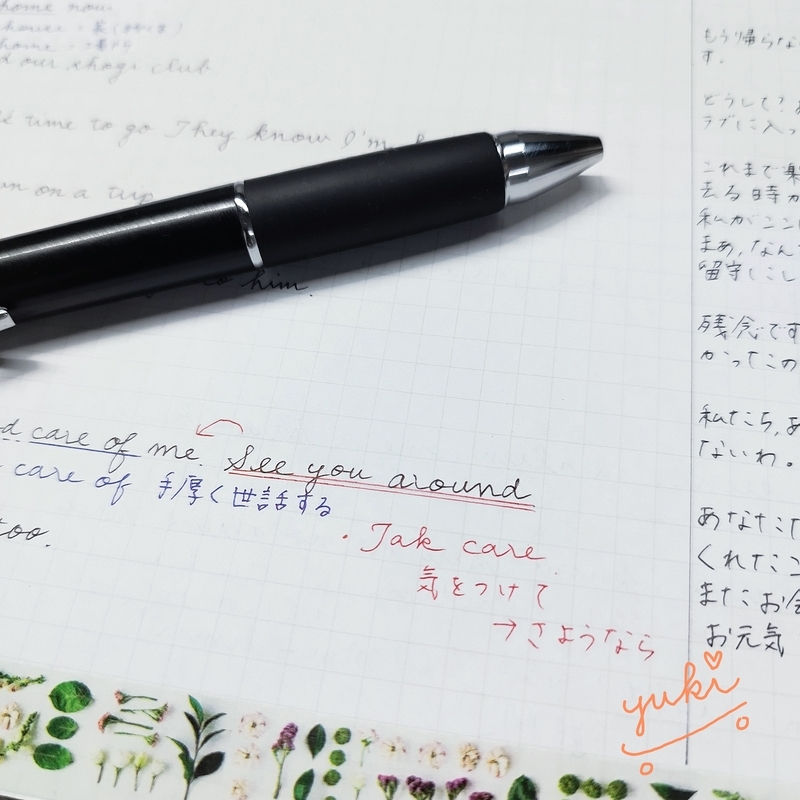 home now
home
d our shogi club
time to go They know I'm
on a trip
him.
d care of me. See you around
care of 手厚く世話する
too.
・Tak care.
気をつけて
→さようなら
もう帰らな
す。
どうして?
ラブに入っ
これまで楽
去る時が
私がここ
まあ,なん
留守にし
残念です
かったこの
私たち,あ
ないわ。
あなたた
くれたこ
またお会
お元気
yuki